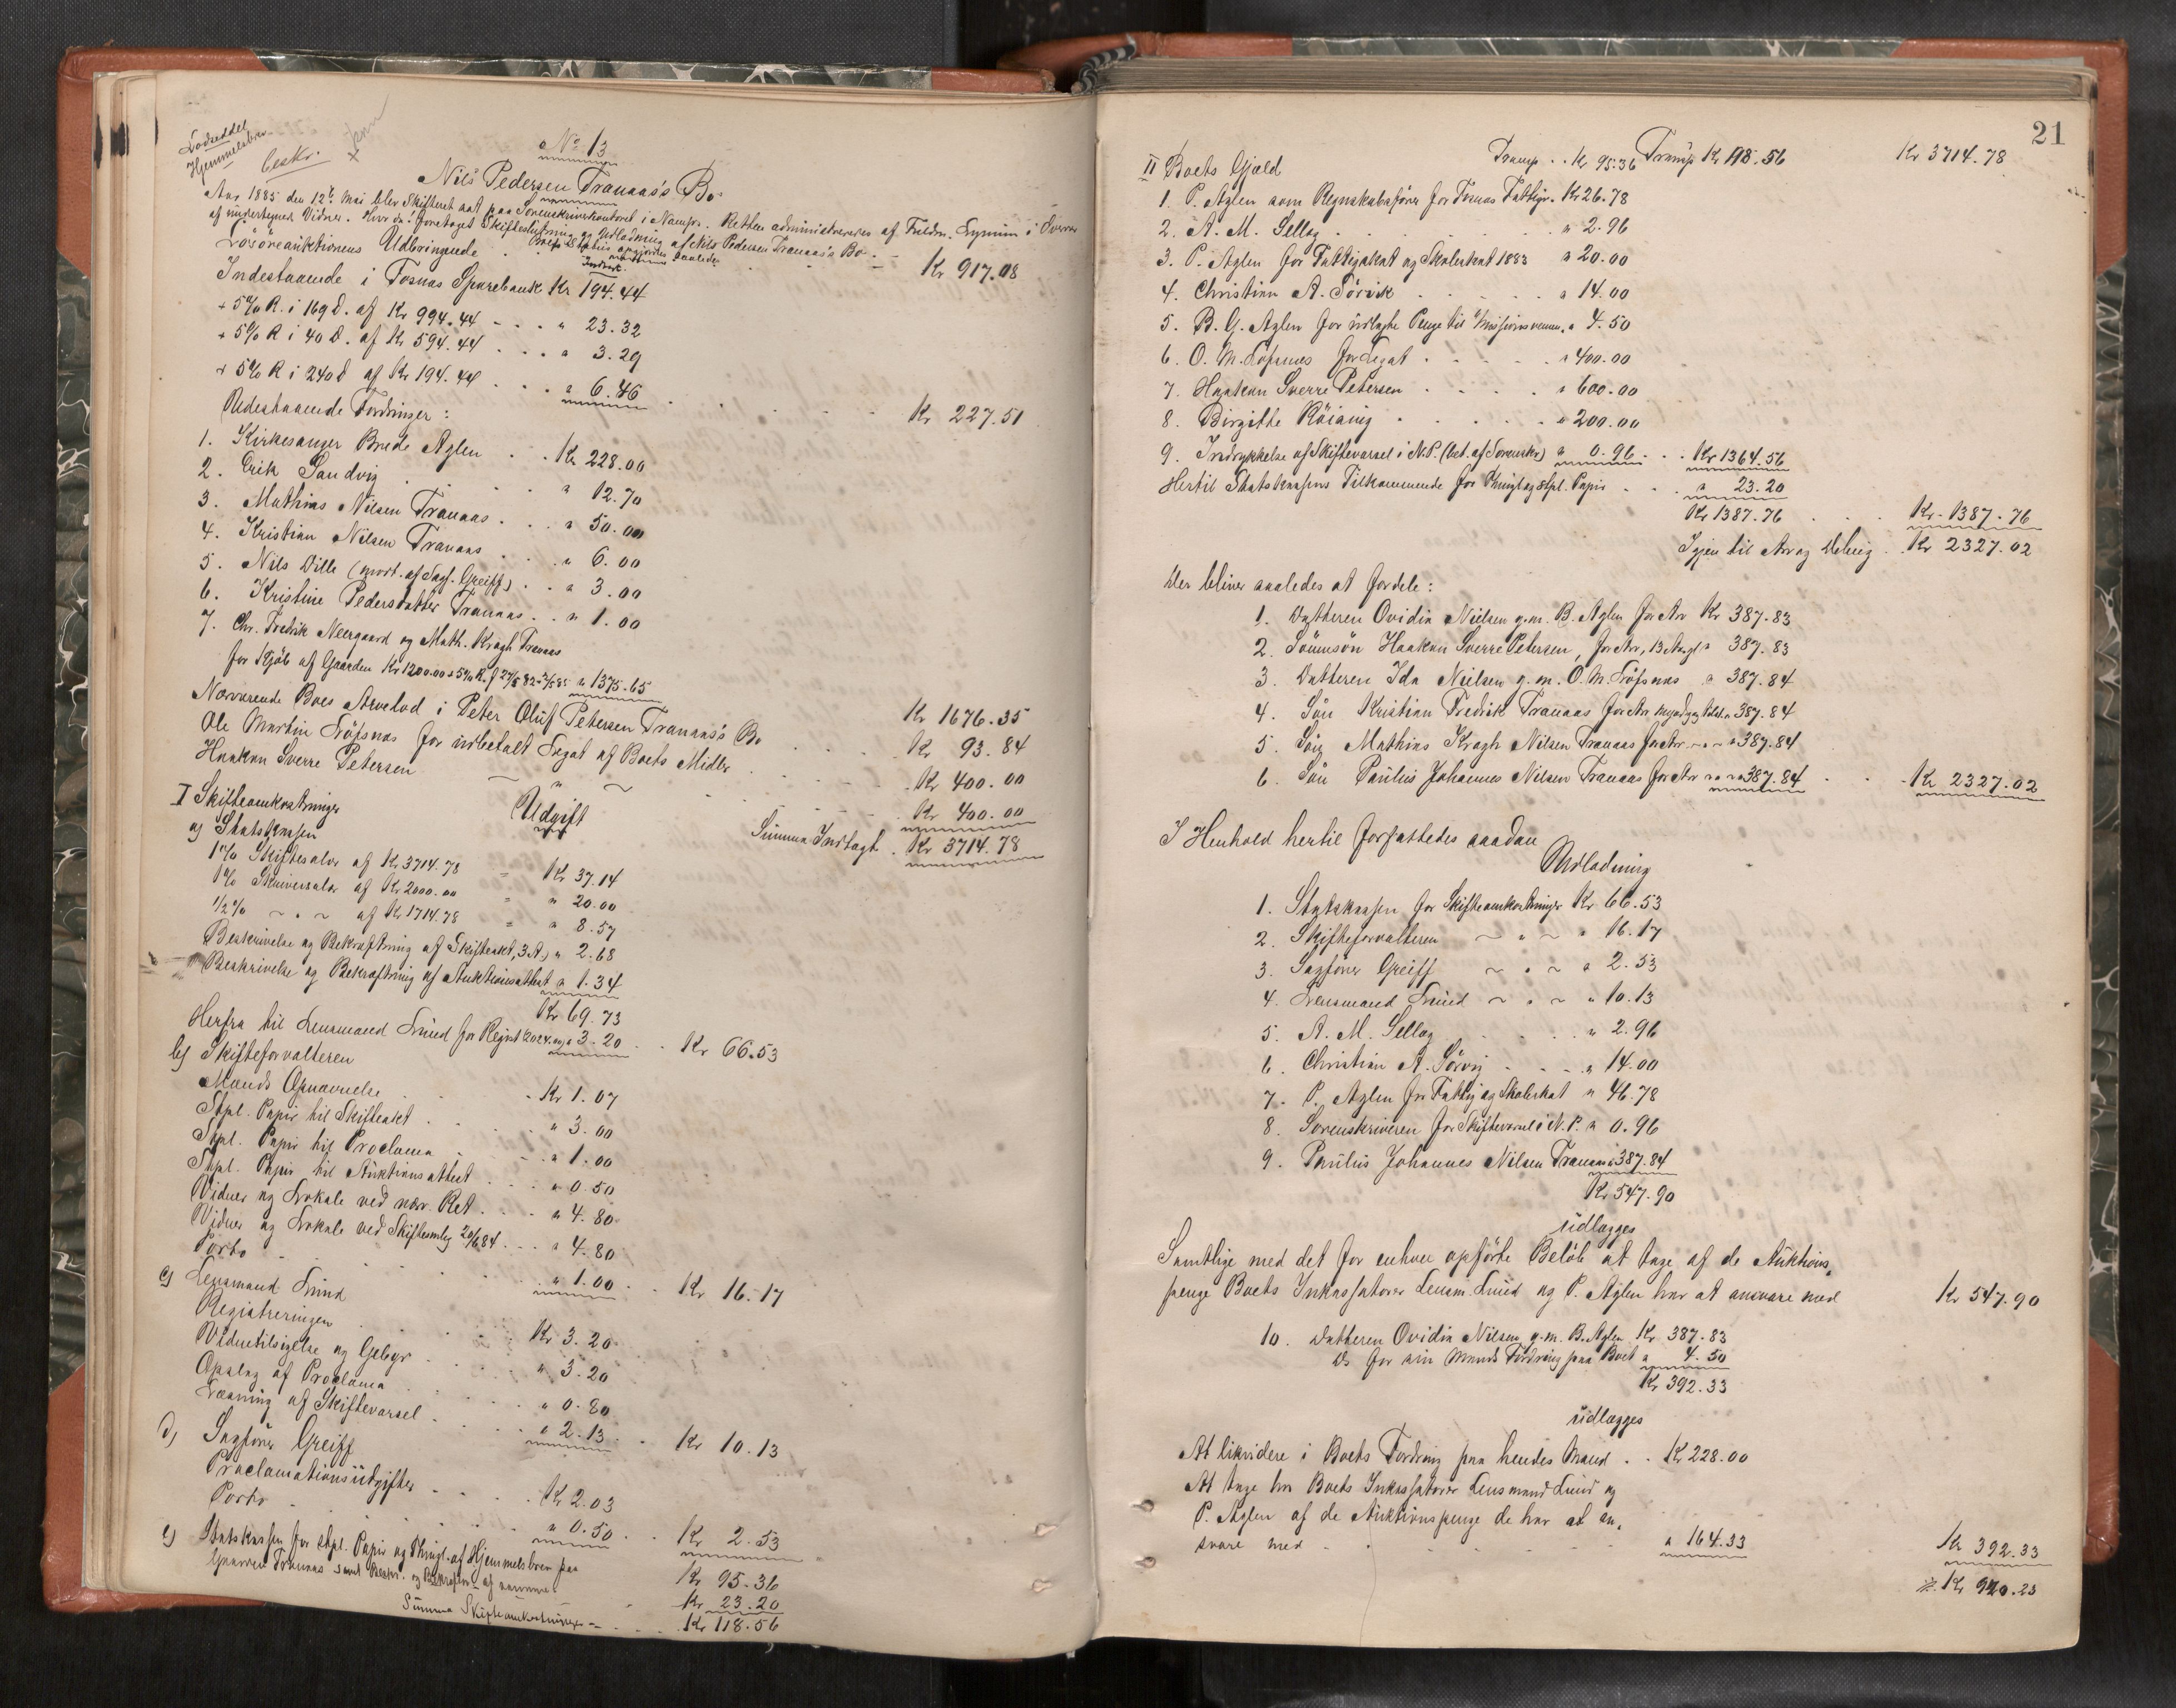 Lodseddel
Hjemmelsbrev
beskr.
No 13
Nils Pedersen Tranaas's Bo
Aar 1885 den 12te Mai blev Skifteret sat paa Sorenskriverkontoret i Namsos. Retten administreredes af Fuldm. Lysmin i Overvær
af undertegnede Vidner. Hvor da: foretoges Skifteslutning og Udlodning af Nils Pedersen Tranaas's Bo.
Boets Status opgjordes saaledes
Indtægt
Løsøreauktionens Udbringende . . . Kr 917.08
Indestaaende i Fosnæs Sparebank Kr 194.44
+ 5% R. i 169 D. af Kr 994.44 - - - " 23.32
+ 5% R i 40 D. af Kr 594.44 . . . " 3.29
+ 5% R i 240 D af Kr 194.44 . . . " 6.46 . . . Kr 227.51
Udestaaende Fordringer:
1. Kirkesanger Brede Aglen . . Kr 228.00
2. Erik Sandvig . . . " 12.70
3. Mathias Nilsen Tranaas . . . " 50.00
4. Kristian Nilsen Tranaas . . . " 6.00
5. Nils Dille (mort. af Sagf. Greiff) . . " 3.00
6. Kristine Pedersdatter Tranaas . . " 1.00
7. Chr. Fredrik Neergaard og Math. Kragh Tranaas
for Kjøb af Gaarden Kr 1200.00 + 5% R. f " 1375.65
Kr 1676.35
Nærværende Boes Arvelod i Peter Oluf Petersen Tranaas's Bo . . . Kr 93.84
Ole Martin Løfsnæs for udbetalt Legat af Boets Midler . . . Kr 400.00
Haakon Sverre Petersen ~ " ~ Kr 400.00
Summa Indtægt . Kr 3714.78
Udgift
I Skifteomkostninger
a) Statskassen
1% Skiftesalær af Kr 3714.78 = Kr 37.14
1% Skriversalær af Kr 2000.00 = " 20.00
1/2% ~ " ~ af Kr 1714.78 = " 8.57
Beskrivelse og Bekræftning af Skifteakt, 3 A, " 2.68
Beskrivelse og Bekræftning af Auktionsattest " 1.34
Kr 69.73
Herfra til Lensmand Lund for Registr. " 3.20 . . Kr 66.53
b) Skifteforvalteren
Mænds Opnævnelse . . Kr 1.07
Stpl. Papir til Skifteakt . . . " 3.00
Stpl. Papir til Proclama . . . " 1.00
Stpl. Papir til Auktionsattest . . . " 0.50
Vidner og Lokale ved nærv. Ret . . . " 4.80
Vidner og Lokale ved Skiftesamlg 20/6 84 . . . " 4.80
Porto . . . " 1.00 . . Kr 16.17
c) Lensmand Lund
Registreringen . . . Kr 3.20
Vidnetilsigelse og Gebyr . . . " 3.20
Opslag af Proclama . . . " 0.80
Læsning af Skiftevarsel . . . " 2.13 . . Kr 10.13
d) Sagfører Greiff
Proclamationsudgifter . . . Kr 2.03
Porto . . . " 0.50 . . Kr 2.53
Kr 95.36
e) Statskassen for stpl. Papir og Thingl. af Hjemmelsbrev paa
Gaarden Tranaas samt Beskr. og Bekræftn. af samme . Kr 23.20
Summa Skifteomkostninger . . . Kr 118.56
21
Transp . . Kr 95.36 Transp Kr 118.56 Kr 3714.78
II Boets Gjæld
1. P. Aglen som Regnskabsfører for Fosnæs Fattigv. Kr 26.78
2. A. M. Sellæg . . . " 2.96
3. P. Aglen for Fattigskat og Skoleskat 1883 " 20.00
4. Christian A. Sørvik . . . " 14.00
5. B. G. Aglen for udlagte Penge til Missionsvennen " 4.50
6. O. M. Løfsnes for Legat . . . " 400.00
7. Haakon Sverre Petersen . . . " 600.00
8. Birgitte Røising . . . " 200.00
9. Indrykkelse af Skiftevarsel i N. P. (bet. af Sorenskr.) " 0.96 . . Kr 1364.56
Hertil Statskassens Tilkommende for Thingl og stpl. Papir . . . " 23.20
Kr 1387.76 . . . Kr 1387.76
Igjen til Arv og Deling . Kr 2327.02
Der bliver saaledes at fordele:
1. Datteren Ovidia Nielsen g. m. B. Aglen for Arv Kr 387.83
2. Sønnesøn Haakon Sverre Petersen, for Arv, 13 Aar gl " 387.83
3. Datteren Ida Nielsen g. m. O. M. Løfsnæs " 387.84
4. Søn Kristian Fredrik Tranaas for Arv myndig og tilst. " 387.84
5. Søn Mathias Kragh Nilsen Tranaas for Arv ~ " ~ " 387.84
6. Søn Paulus Johannes Nilsen Tranaas for Arv ~ " ~ " 387.84 . . . Kr 2327.02
I Henhold hertil forfattedes saadan
Udlodning
1. Statskassen for Skifteomkostninger Kr 66.53
2. Skifteforvalteren ~ " ~ " 16.17
3. Sagfører Greiff ~ " ~ " 2.53
4. Lensmand Lund ~ " ~ " 10.13
5. A. M. Sellæg . . . " 2.96
6. Christian A. Sørvig . . . " 14.00
7. P. Aglen for Fattig og Skoleskat " 46.78
8. Sorenskriveren for Skiftevarsel i N. P. " 0.96
9. Paulus Johannes Nilsen Tranaas " 387.84
Kr 547.90
udlægges
Samtlige med det for enhver opførte Beløb at tage af de Auktions-
penge Boets Inkassatorer Lensm. Lund og P. Aglen har at ansvare med Kr 547.90
10. Datteren Ovidia Nilsen g. m. B. Aglen Kr 387.83
Ds for sin Mands Fordring paa Boet " 4.50
Kr 392.33
udlægges
At likvidere i Boets Fordring paa hendes Mand . . Kr 228.00
At tage hos Boets Inkassatorer Lensmand Lund og
P. Aglen af de Auktionspenge de har at an-
svare med . . . " 164.33 Kr 392.33
Kr 940.23